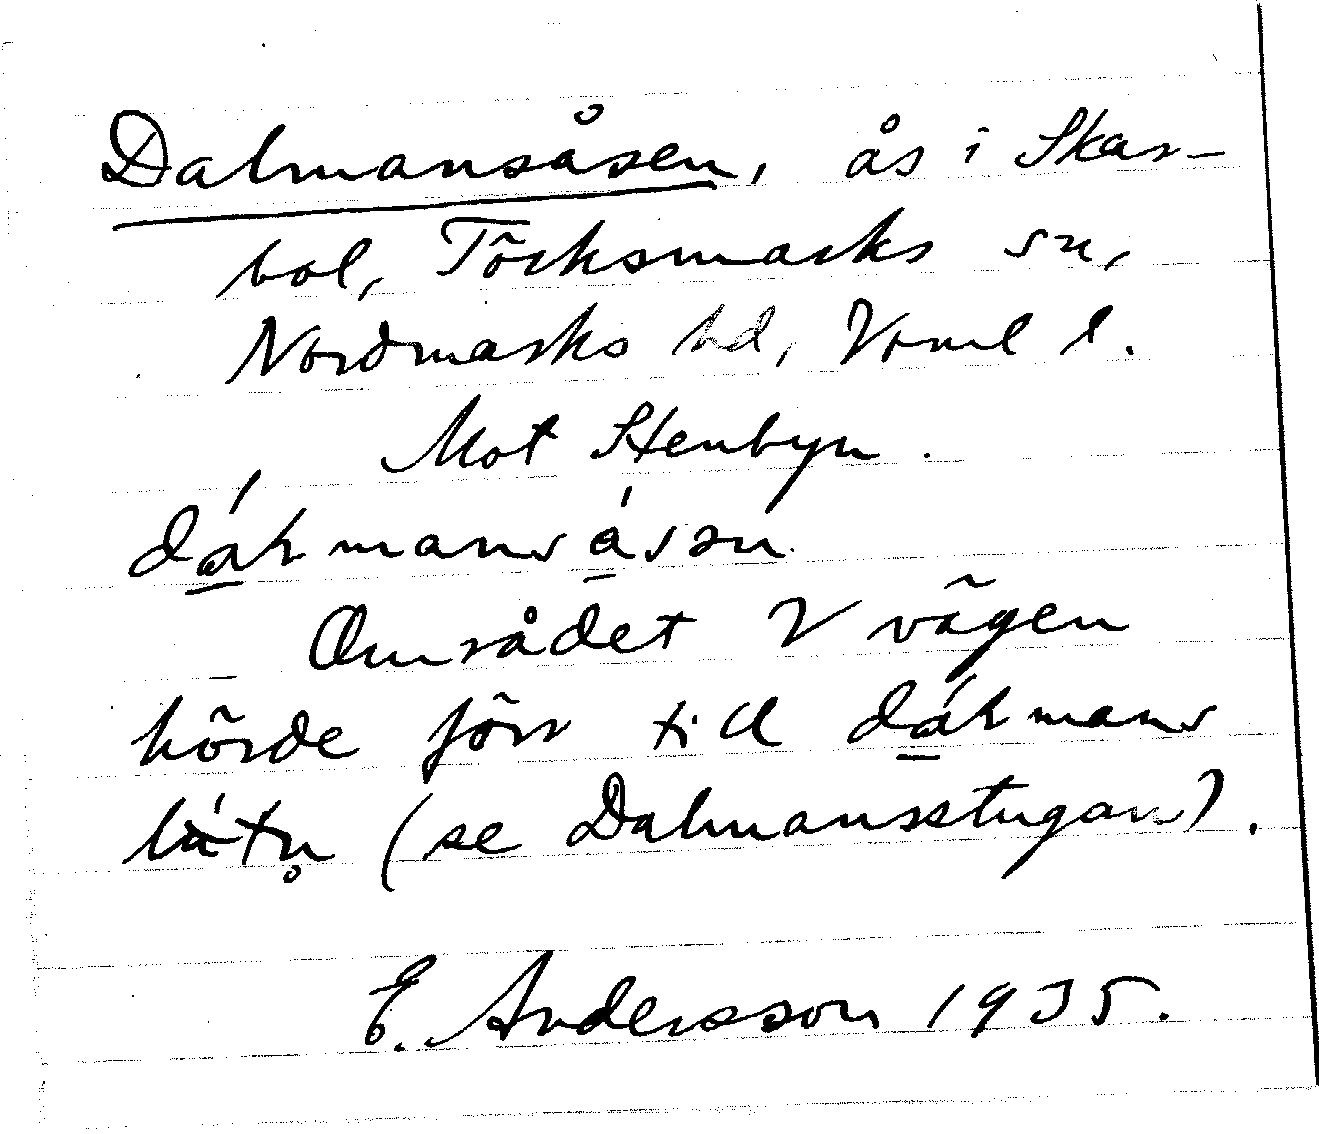 Dalmansåsen, ås i Skar-
bol, Töcksmarks sn,
Nordmarks hd, Vrml l.
Mot Stenbyn.
Området V vägen
hörde förr till
(se Dalmansstugan).
E. Andersson 1935.